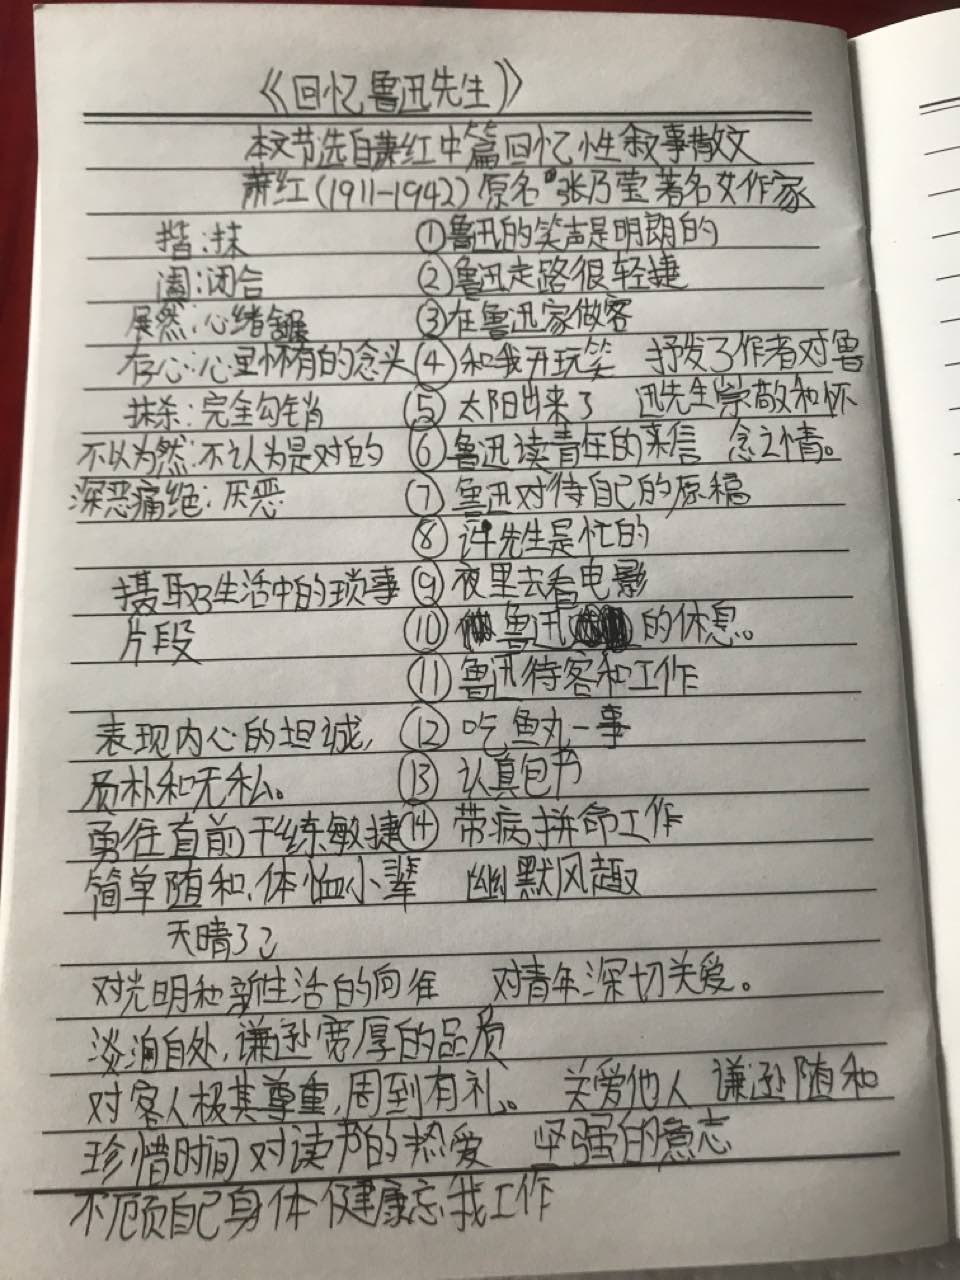 《回忆鲁迅先生》
本文节选自萧红中篇回忆性叙事散文
萧红(1911-1942)原名 张乃莹 著名女作家
揩:抹 ①鲁迅的笑声是明朗的
阖:闭合 ②鲁迅走路很轻捷
展然:心绪舒展 ③在鲁迅家做客
存心:心里怀有的念头 ④和我开玩笑 抒发了作者对鲁
抹杀:完全勾销 ⑤太阳出来了 迅先生崇敬和怀
不以为然:不认为是对的 ⑥鲁迅读青年的来信 念之情。
深恶痛绝:厌恶 ⑦鲁迅对待自己的原稿
⑧许先生是忙的
摄取了生活中的琐事 ⑨夜里去看电影
片段 ⑩鲁迅 的休息。
⑪鲁迅待客和工作
表现内心的坦诚, ⑫吃鱼丸一事
质朴和无私。 ⑬认真包书
勇往直前 干练敏捷 ⑭带病拼命工作
简单随和、体恤小辈 幽默风趣
天晴了
对光明和新生活的向往 对青年深切关爱。
淡泊自处,谦逊宽厚的品质
对客人极其尊重,周到有礼。 关爱他人 谦逊随和
珍惜时间 对读书的热爱 坚强的意志
不顾自己身体健康忘我工作